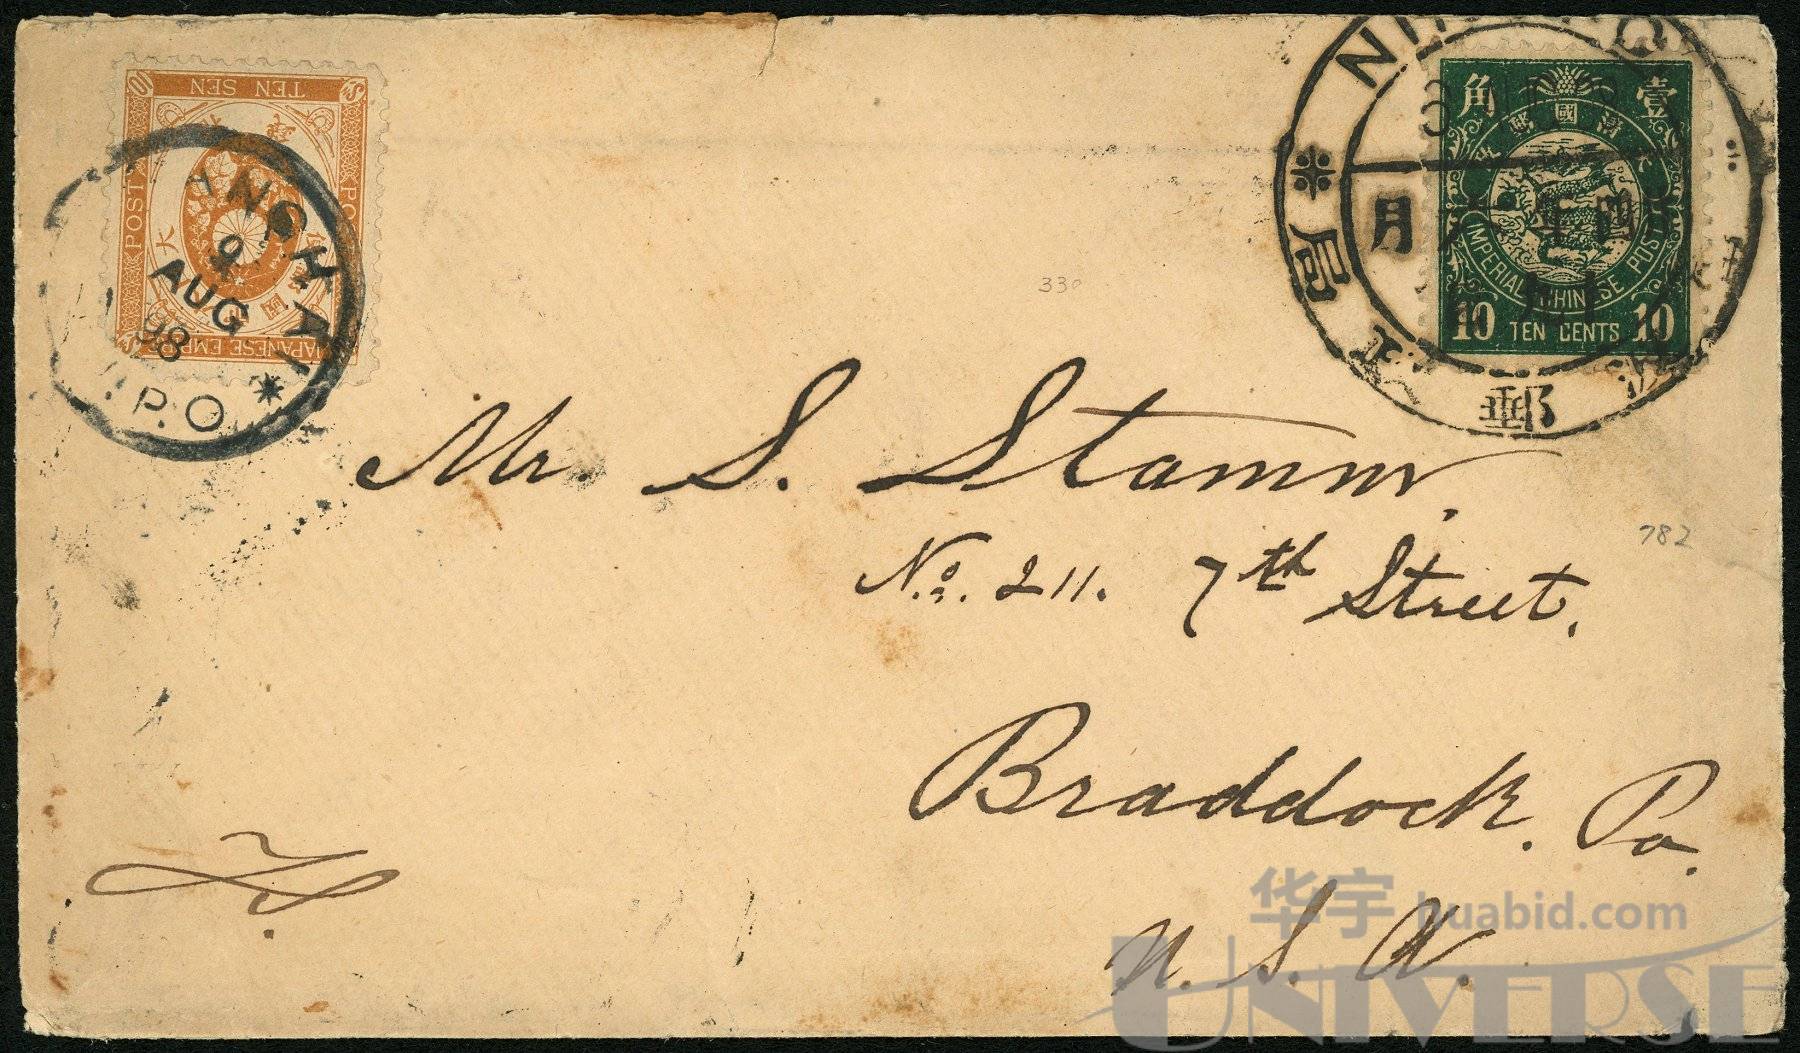 TEN SEN
10 S
POST
JAPANESE EMPIRE
9
AUG
98
I.P.O.
壹
角
大清國郵政
IMPERIAL CHINESE POST
10 TEN CENTS 10
月
局
郵
330
Mr. S. Stamm,
No. 211. 7th Street,
782
Braddock. Pa.
U. S. A.
华宇 huabid.com
UNIVERSE